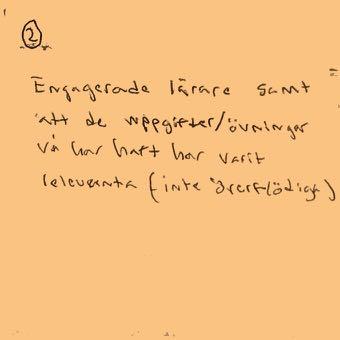 2
Engagerade lärare samt
att de uppgifter/övningar
vi har haft har varit
relevanta (inte överflödiga)